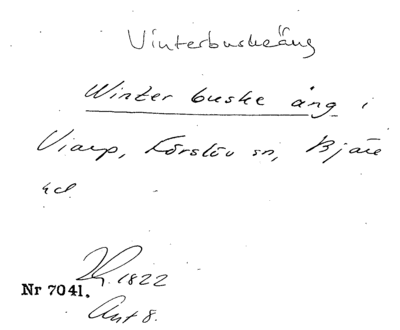 Vinterbuskeäng
Winter buske äng i
Viarp, Förslöv sn, Bjäre
hd
1822
Nr 7041.
Akt 8.